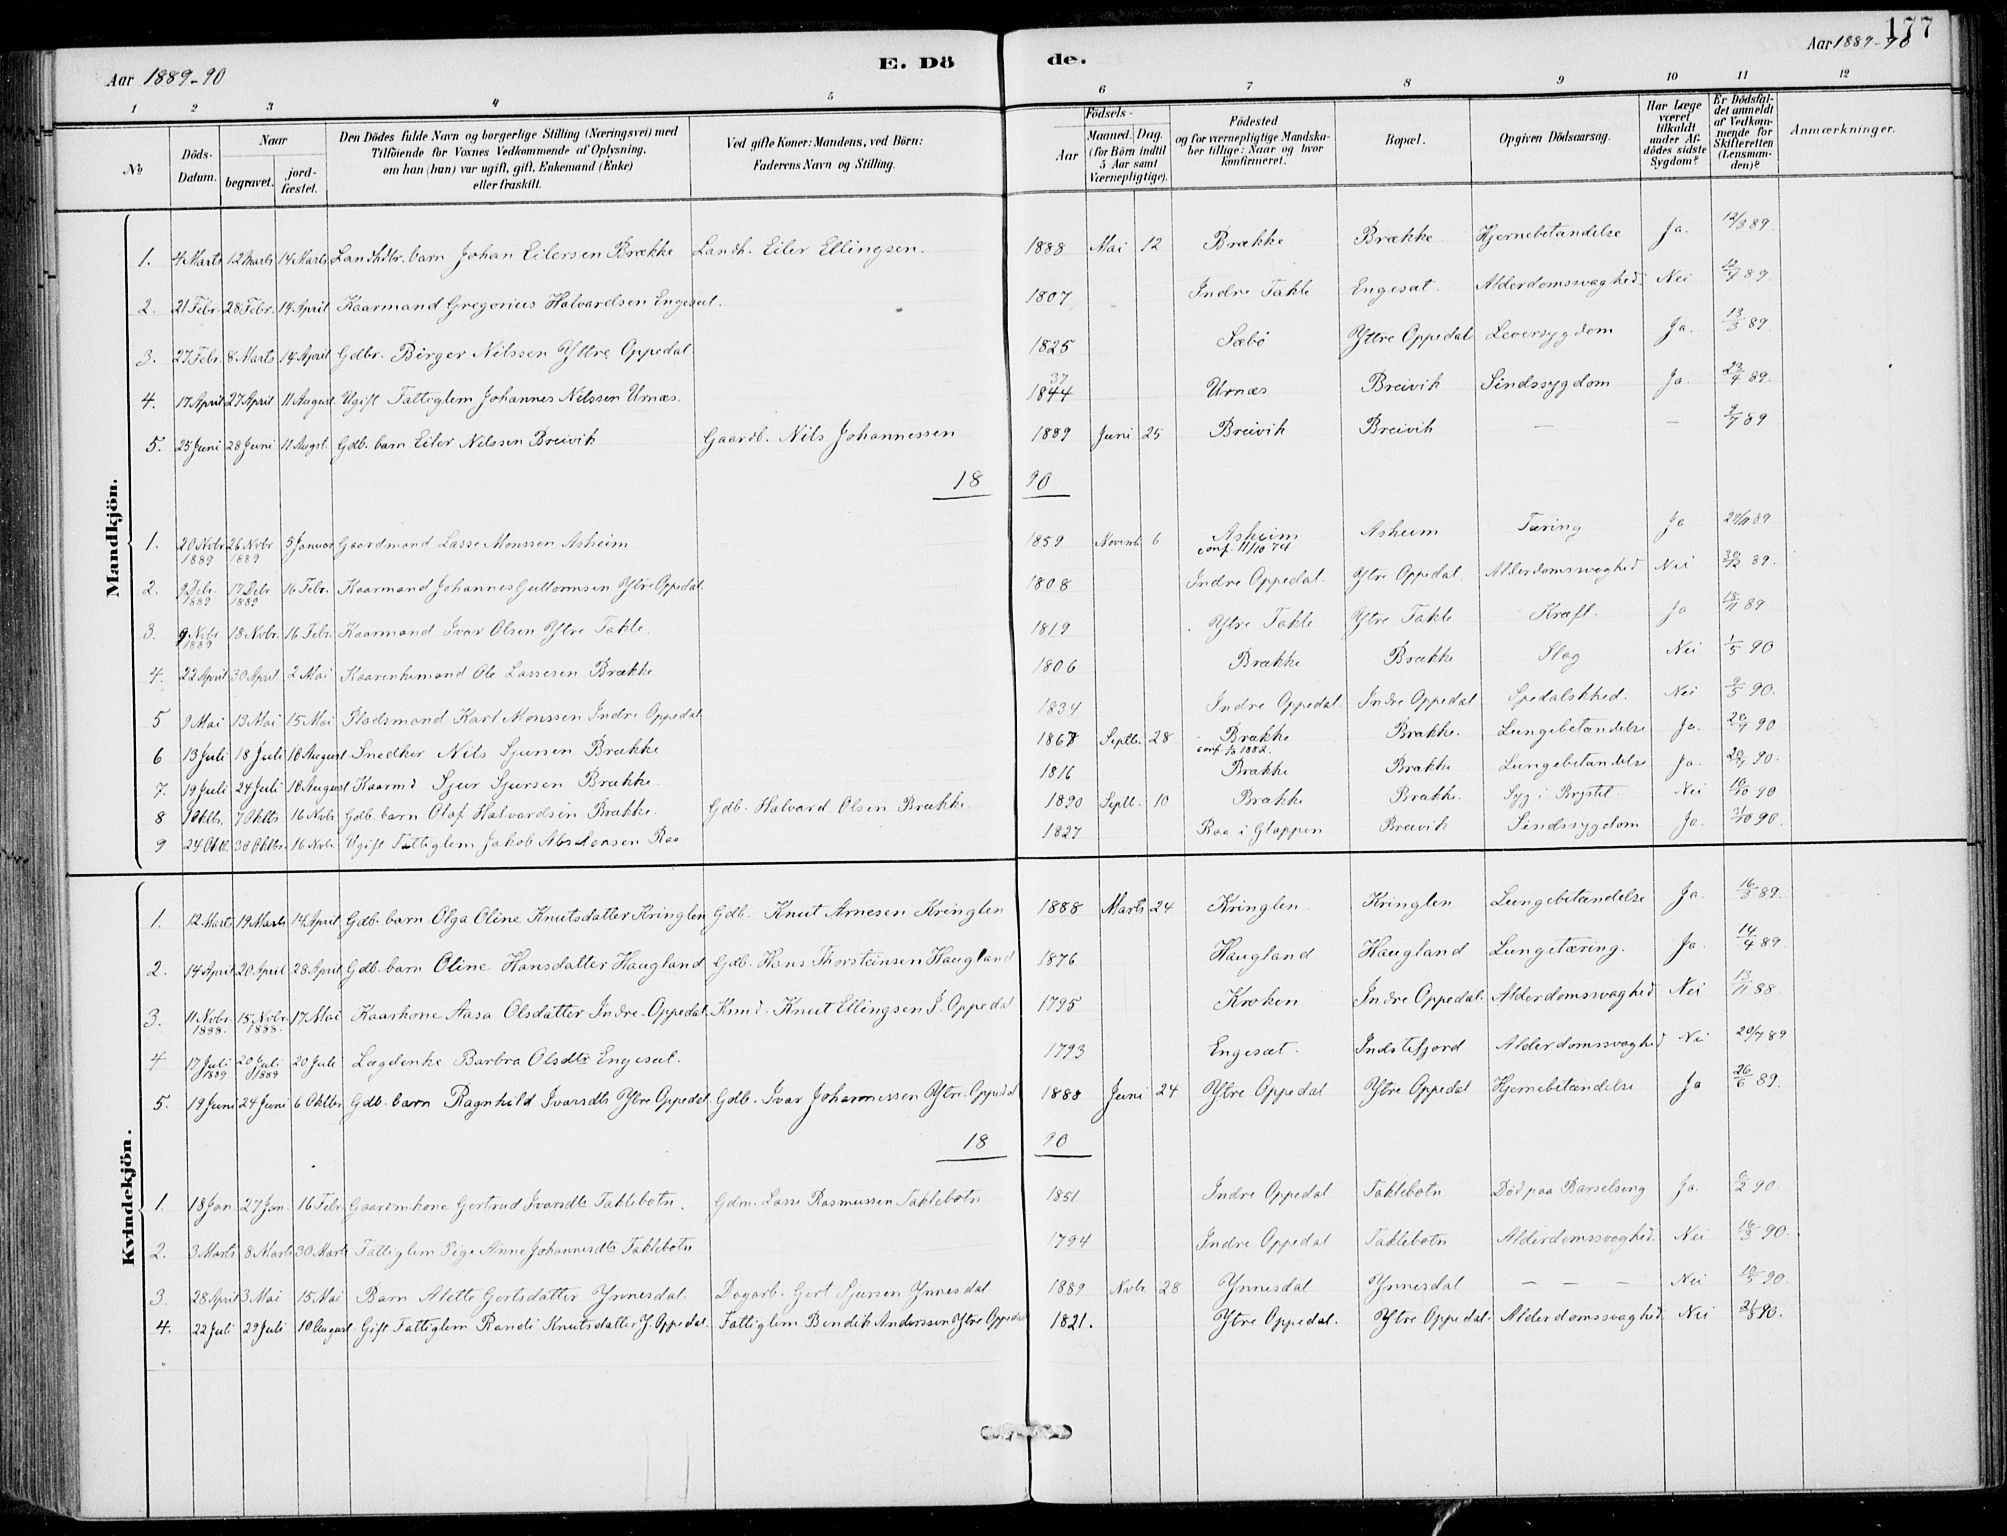 177
Aar 1889-90
E. Dö
de.
Aar 1889-90
1 2 3 4 5 6 7 8 9 10 11 12
No
Döds-Datum.
Naar
begravet.
jord-fæstet.
Den Dödes fulde Navn og borgerlige Stilling (Næringsvei) med
Tilföiende for Voxnes Vedkommende af Oplysning,
om han (hun) var ugift, gift, Enkemand (Enke)
eller fraskilt.
Ved gifte Koner: Mandens, ved Börn:
Faderens Navn og Stilling.
Födsels-
Aar
Maaned. Dag.
(for Börn indtil
5 Aar samt
Værnepligtige).
Födested
og for værnepligtige Mandska-
ber tillige: Naar og hvor
konfirmeret.
Bopæl.
Opgiven Dödsaarsag.
Har Læge
været
tilkaldt
under Af-
dödes sidste
Sygdom?
Er Dödsfal-
det anmeldt
af Vedkom-
mende for
Skifteretten
(Lensman-
den)?
Anmærkninger.
Mandkjön.
1. 4 Marts 12 Marts 14 Marts Landhdlr. barn Johan Eilersen Brække Landh. Eiler Ellingsen. 1888 Mai 12 Brække Brække Hjernebetændelse Ja. 12/3 89.
2. 21 Febr. 28 Febr. 14 April Kaarmand Gregorius Halvardsen Engesæt. 1807 Indre Takle Engesæt. Alderdomssvaghed. Nei 12/4 89.
3. 27 Febr. 8 Marts 14 April Gdbr. Birger Nilssen Ytre Oppedal 1825 Sæbö Ytre Oppedal Leversygdom Ja. 13/3 89.
4. 17 April 27 April 11 August Ugift Fattiglem Johannes Nilssen Urnæs. 1844 37 Urnæs Breivik Sindssygdom Ja. 23/4 89.
5. 25 Juni 28 Juni 11 Augst. Gdb. barn Eiler Nilssen Breivik Gaardb. Nils Johannessen 1889 Juni 25 Breivik Breivik — — 9/7 89
18 90
1. 20 Novbr 1889 26 Novbr 1889 5 Januar Gaardmand Lasse Monssen Asheim 1859 Novemb. 6 Asheim conf. 11/10 74 Asheim Tæring Ja 27/11 89
2. 9 Debr. 1889 17 Debr 1889 16 Febr. Kaarmand Johannes Guttormsen Ytre Oppedal. 1808 Indre Oppedal. Ytre Oppedal. Alderdomssvaghed Nei 30/12 89.
3. 9 Novbr. 1889 18 Novbr. 16 Febr. Kaarmand Ivar Olsen Ytre Takle. 1819 Ytre Takle Ytre Takle Kræft. Ja 18/11 89
4. 22 April 30 April 2 Mai Kaarenkemand Ole Lassesen Brække 1806 Brække Brække Slag Nei 1/5 90
5 9 Mai 13 Mai 15 Mai Pladsmand Karl Monssen Indre Oppedal 1834 Indre Oppedal. Indre Oppedal Spedalskhed. Nei 9/5 90.
6 13 Juli 18 Juli 10 August Snedker Nils Sjursen Brække 1867 Septb. 28 Brække conf. 1882. Brække. Lungebetændelse Ja. 20/7 90
7. 19 Juli 24 Juli 10 August Kaarmd Sjur Sjursen Brække. 1816 Brække Brække Lungebetændelse Ja. 90.
8 1 Oktbr. 7 Oktbr 16 Novbr Gdb. barn Olaf Halvardsen Brække. Gdb. Halvard Olsen Brække. 1890 Septb. 10 Brække Brække. Syg i Brystet. Nei 10/10 90
9 24 Oktbr. 30 Oktbr. 16 Novbr. Ugift Fattiglem Jakob Absalonsen Raa 1827 Raa i Gloppen Breivik Sindssygdom Ja. 90.
Kvindekjön.
1. 12 Marts 19 Marts 14 April Gdb. barn Olga Oline Knutsdatter Kringlen Gdb. Knut Arnesen Kringlen 1888 Marts 24 Kringlen. Kringlen Lungebetændelse Ja. 16/3 89.
2. 14 April 20 April 28 April Gdb. barn Oline Hansdatter Haugland Gdb. Hans Thorsteinsen Haugland 1876 Haugland Haugland Lungetæring. Ja. 14/4 89.
3. 11 Novbr. 1888. 15 Novbr. 1888. 17 Mai Kaarkone Aasa Olsdatter Indre Oppedal. Kmd. Knut Ellingsen I. Oppedal 1795 Kroken Indre Oppedal. Alderdomssvaghed Nei 13/11 88.
4 17 Juli 1889 20 Juli 1889 20 Juli Lægdenke Barbra Olsdtr Engesæt. 1793 Engesæt. Indstefjord Alderdomssvaghed Nei 20/7 89
5. 19 Juni 24 Juni 6 Oktbr Gdb. barn Ragnhild Ivarsdtr Ytre Oppedal Gdb. Ivar Johannessen Ytre Oppedal 1888 Juni 24 Ytre Oppedal Ytre Oppedal Hjernebetændelse Ja 26/6 89.
18 90
1. 18 Jan. 27 Jan. 16 Febr. Gaardmkone Gertrud Ivarsdtr Taklebotn. Gdm. Lasse Rasmussen Taklebotn 1851 Indre Oppedal Taklebotn Död paa Barselseng Ja. 6/2 90.
2. 3 Marts 8 Marts 30 Marts Fattiglem Pige Anne Johannesdtr Taklebotn 1794 Indre Oppedal Taklebotn Alderdomssvaghed. Nei 16/3 90.
3. 28 April 3 Mai 15 Mai Barn Alette Gertsdatter Ynnesdal. Dagarb. Gert Sjursen Ynnesdal 1889 Novbr. 28 Ynnesdal Ynnesdal — — — Nei 10/5 90.
4. 22 Juli 29 Juli 10 August Gift Fattiglem Randi Knutsdatter Y. Oppedal. Fattiglem Bendik Anderssen Ytre Oppedal 1821. Ytre Oppedal. Ytre Oppedal. Alderdomssvaghed. Nei 90.
"